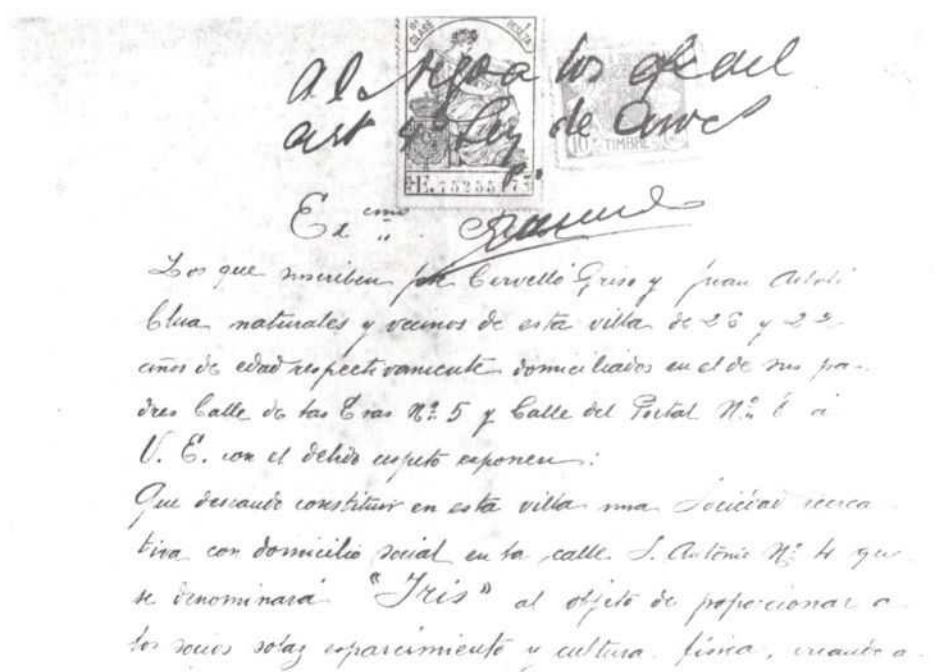 Al Rego a los ofc del
art 4º Ley de Asoc
9ª CLASE 1 PESETA
10 C TIMBRE
E.7525517
Excmo
Los que suscriben José Cervelló Griso y Juan
Clua naturales y vecinos de esta villa de 26 y 22
años de edad respectivamente domiciliados en el de sus pa-
dres Calle de las Eras Nº 5 y Calle del Portal Nº a
V. E. con el debido respeto exponen:
Que deseando constituir en esta villa una Sociedad recrea
tiva con domicilio social en la calle S. Antonio Nº 4 que
se denominará "Iris" al objeto de proporcionar a
los socios solaz esparcimiento y cultura física, creando a